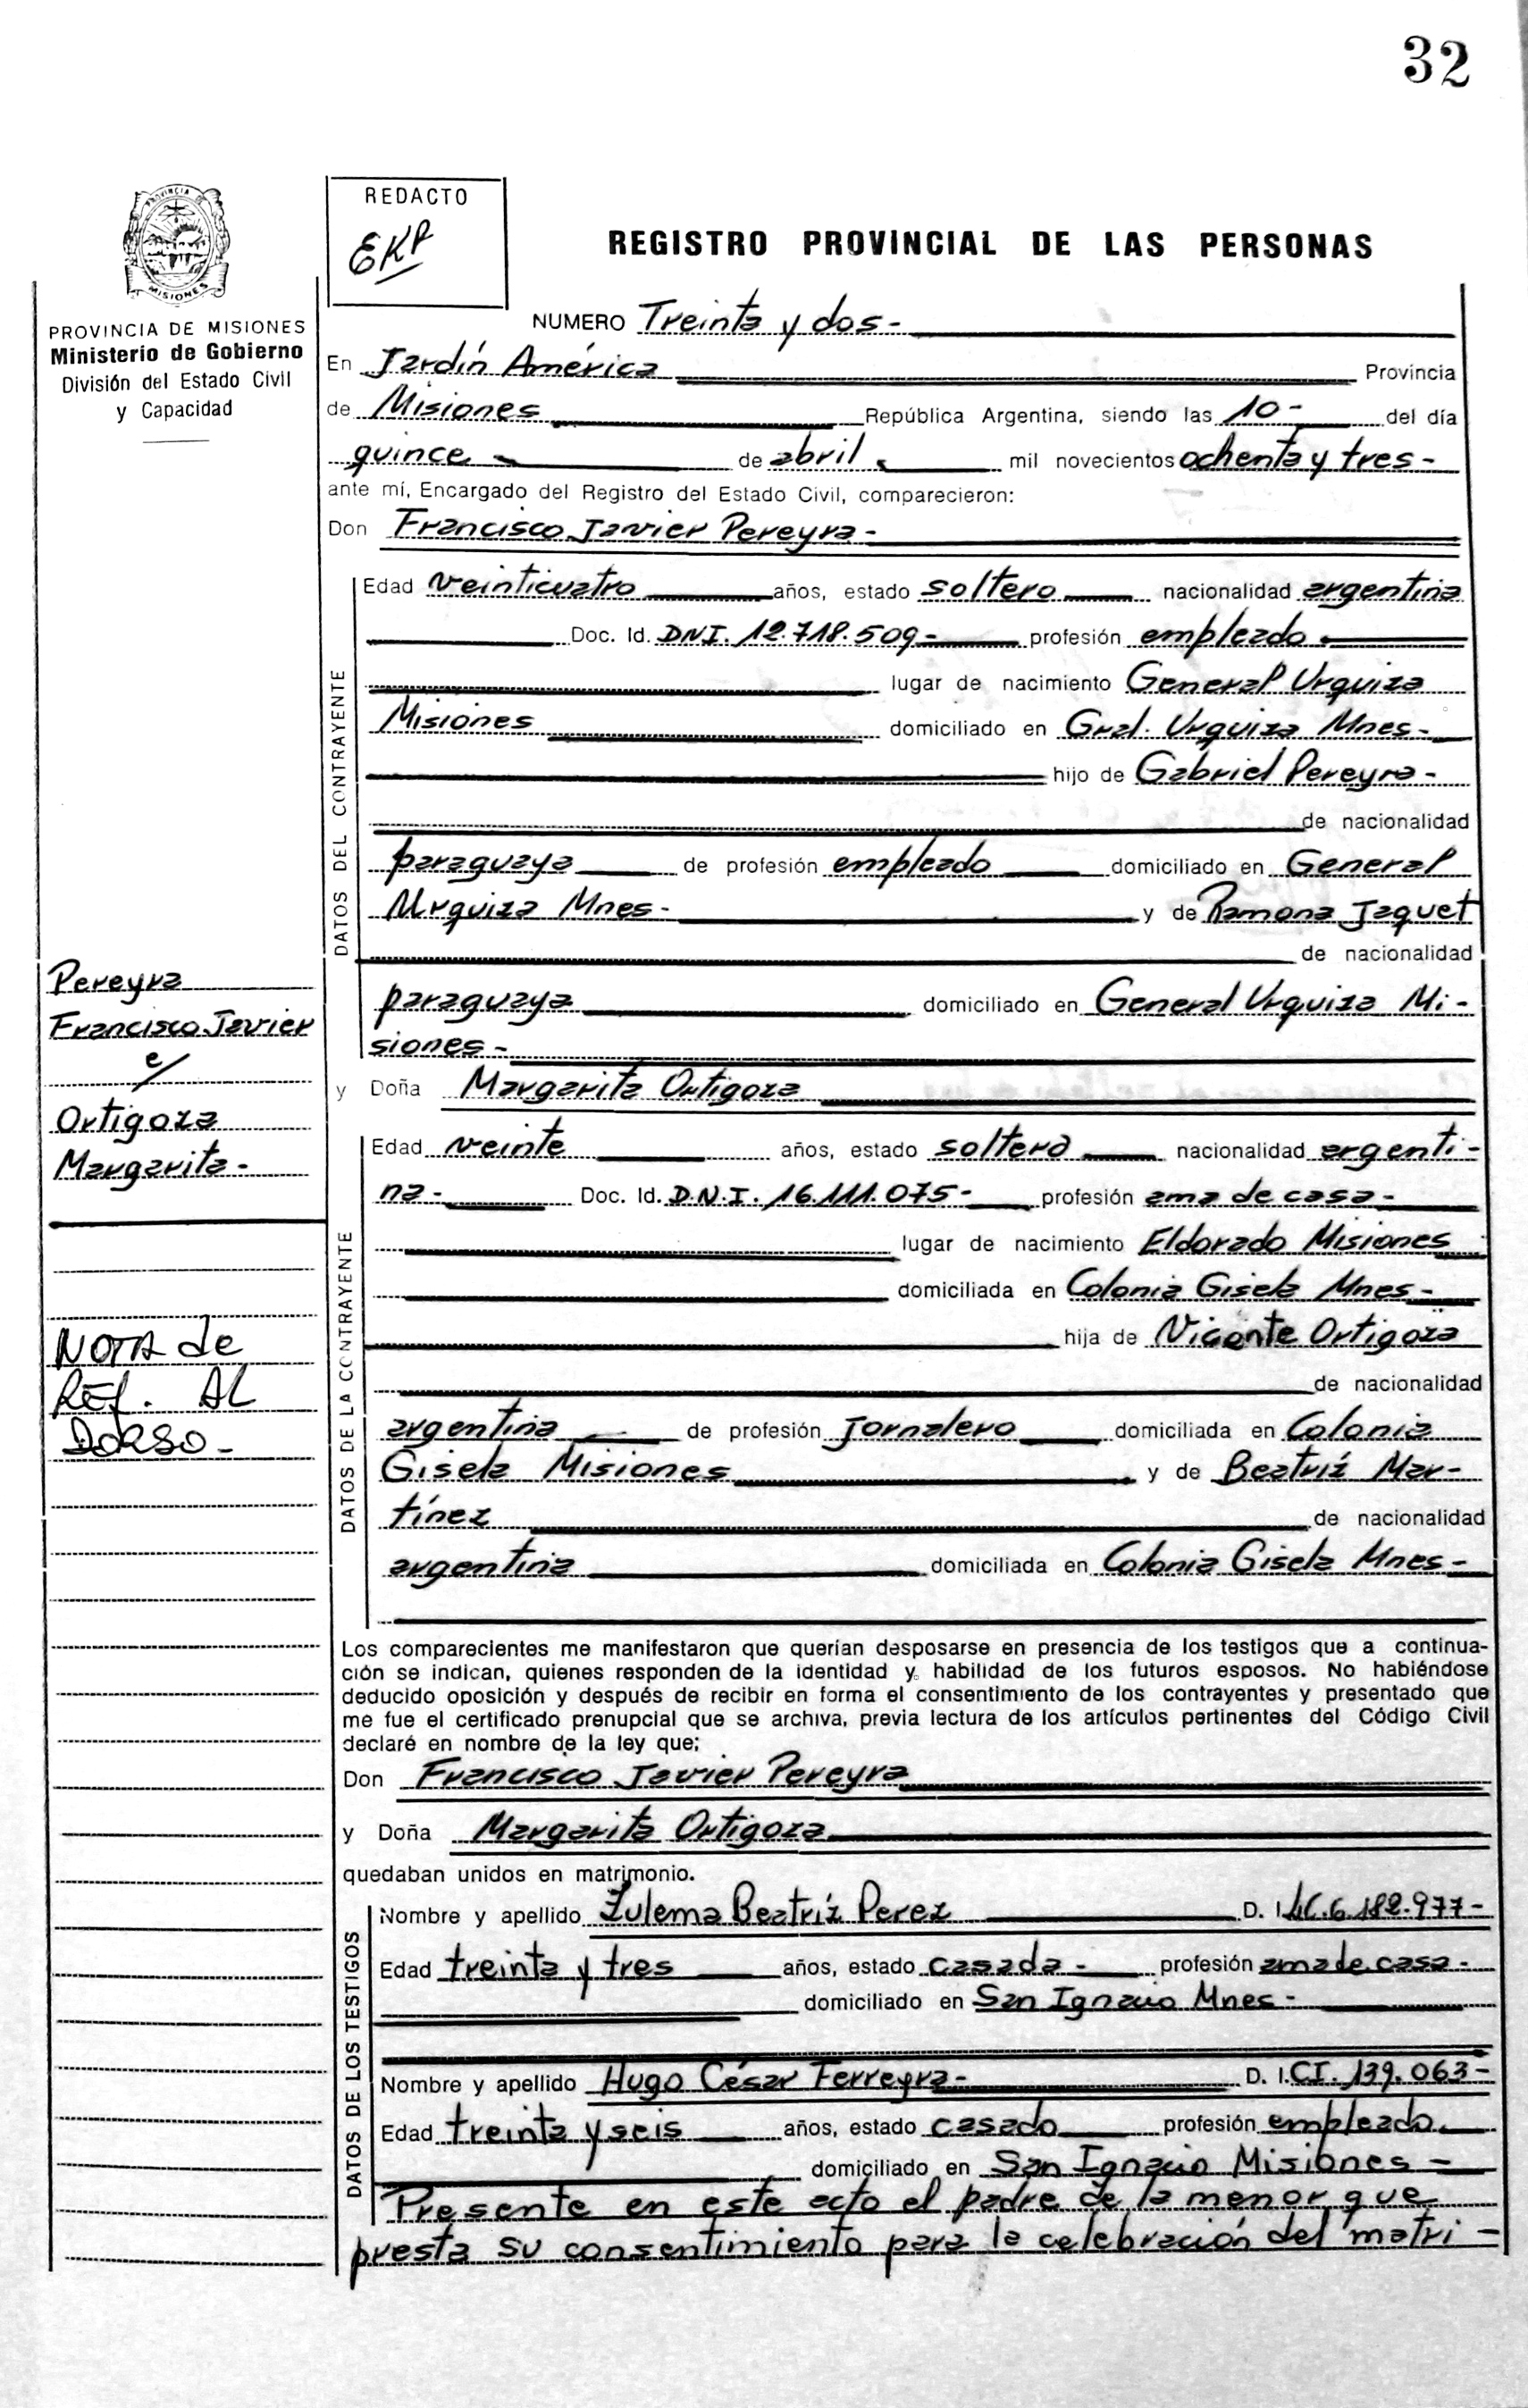 32
PROVINCIA DE
MISIONES
REDACTO
EKP
REGISTRO PROVINCIAL DE LAS PERSONAS
PROVINCIA DE MISIONES
Ministerio de Gobierno
División del Estado Civil
y Capacidad
NUMERO Treinta y dos-
En Jardín América Provincia
de Misiones República Argentina, siendo las 10- del día
quince de abril mil novecientos ochenta y tres-
ante mí, Encargado del Registro del Estado Civil, comparecieron:
Don Francisco Javier Pereyra-
DATOS DEL CONTRAYENTE
Edad veinticuatro años, estado soltero nacionalidad argentina
Doc. Id. DNI. 12.718.509- profesión empleado
lugar de nacimiento General Urquiza
Misiones domiciliado en Gral. Urquiza Mnes-
hijo de Gabriel Pereyra-
de nacionalidad
paraguaya de profesión empleado domiciliado en General
Urquiza Mnes- y de Ramona Jaquet
de nacionalidad
paraguaya domiciliado en General Urquiza Mi-
siones-
Pereyra
Francisco Javier
e/
Ortigoza
Margarita-
NOTA de
REF. AL
DORSO-
y Doña Margarita Ortigoza
DATOS DE LA CONTRAYENTE
Edad veinte años, estado soltera nacionalidad argenti-
na- Doc. Id. D.N.I. 16.111.075- profesión ama de casa-
lugar de nacimiento Eldorado Misiones
domiciliada en Colonia Gisela Mnes-
hija de Vicente Ortigoza
de nacionalidad
argentina de profesión jornalero domiciliada en Colonia
Gisela Misiones y de Beatriz Mar-
tínez de nacionalidad
argentina domiciliada en Colonia Gisela Mnes-
Los comparecientes me manifestaron que querían desposarse en presencia de los testigos que a continua-
ción se indican, quienes responden de la identidad y habilidad de los futuros esposos. No habiéndose
deducido oposición y después de recibir en forma el consentimiento de los contrayentes y presentado que
me fue el certificado prenupcial que se archiva, previa lectura de los artículos pertinentes del Código Civil
declaré en nombre de la ley que;
Don Francisco Javier Pereyra
y Doña Margarita Ortigoza
quedaban unidos en matrimonio.
DATOS DE LOS TESTIGOS
Nombre y apellido Zulema Beatriz Perez D. I. LC. 6.182.977-
Edad treinta y tres años, estado casada- profesión ama de casa-
domiciliado en San Ignacio Mnes-
Nombre y apellido Hugo César Ferreyra- D. I. CI. 139.063-
Edad treinta y seis años, estado casado profesión empleado
domiciliado en San Ignacio Misiones-
Presente en este acto el padre de la menor que
presta su consentimiento para la celebración del matri-